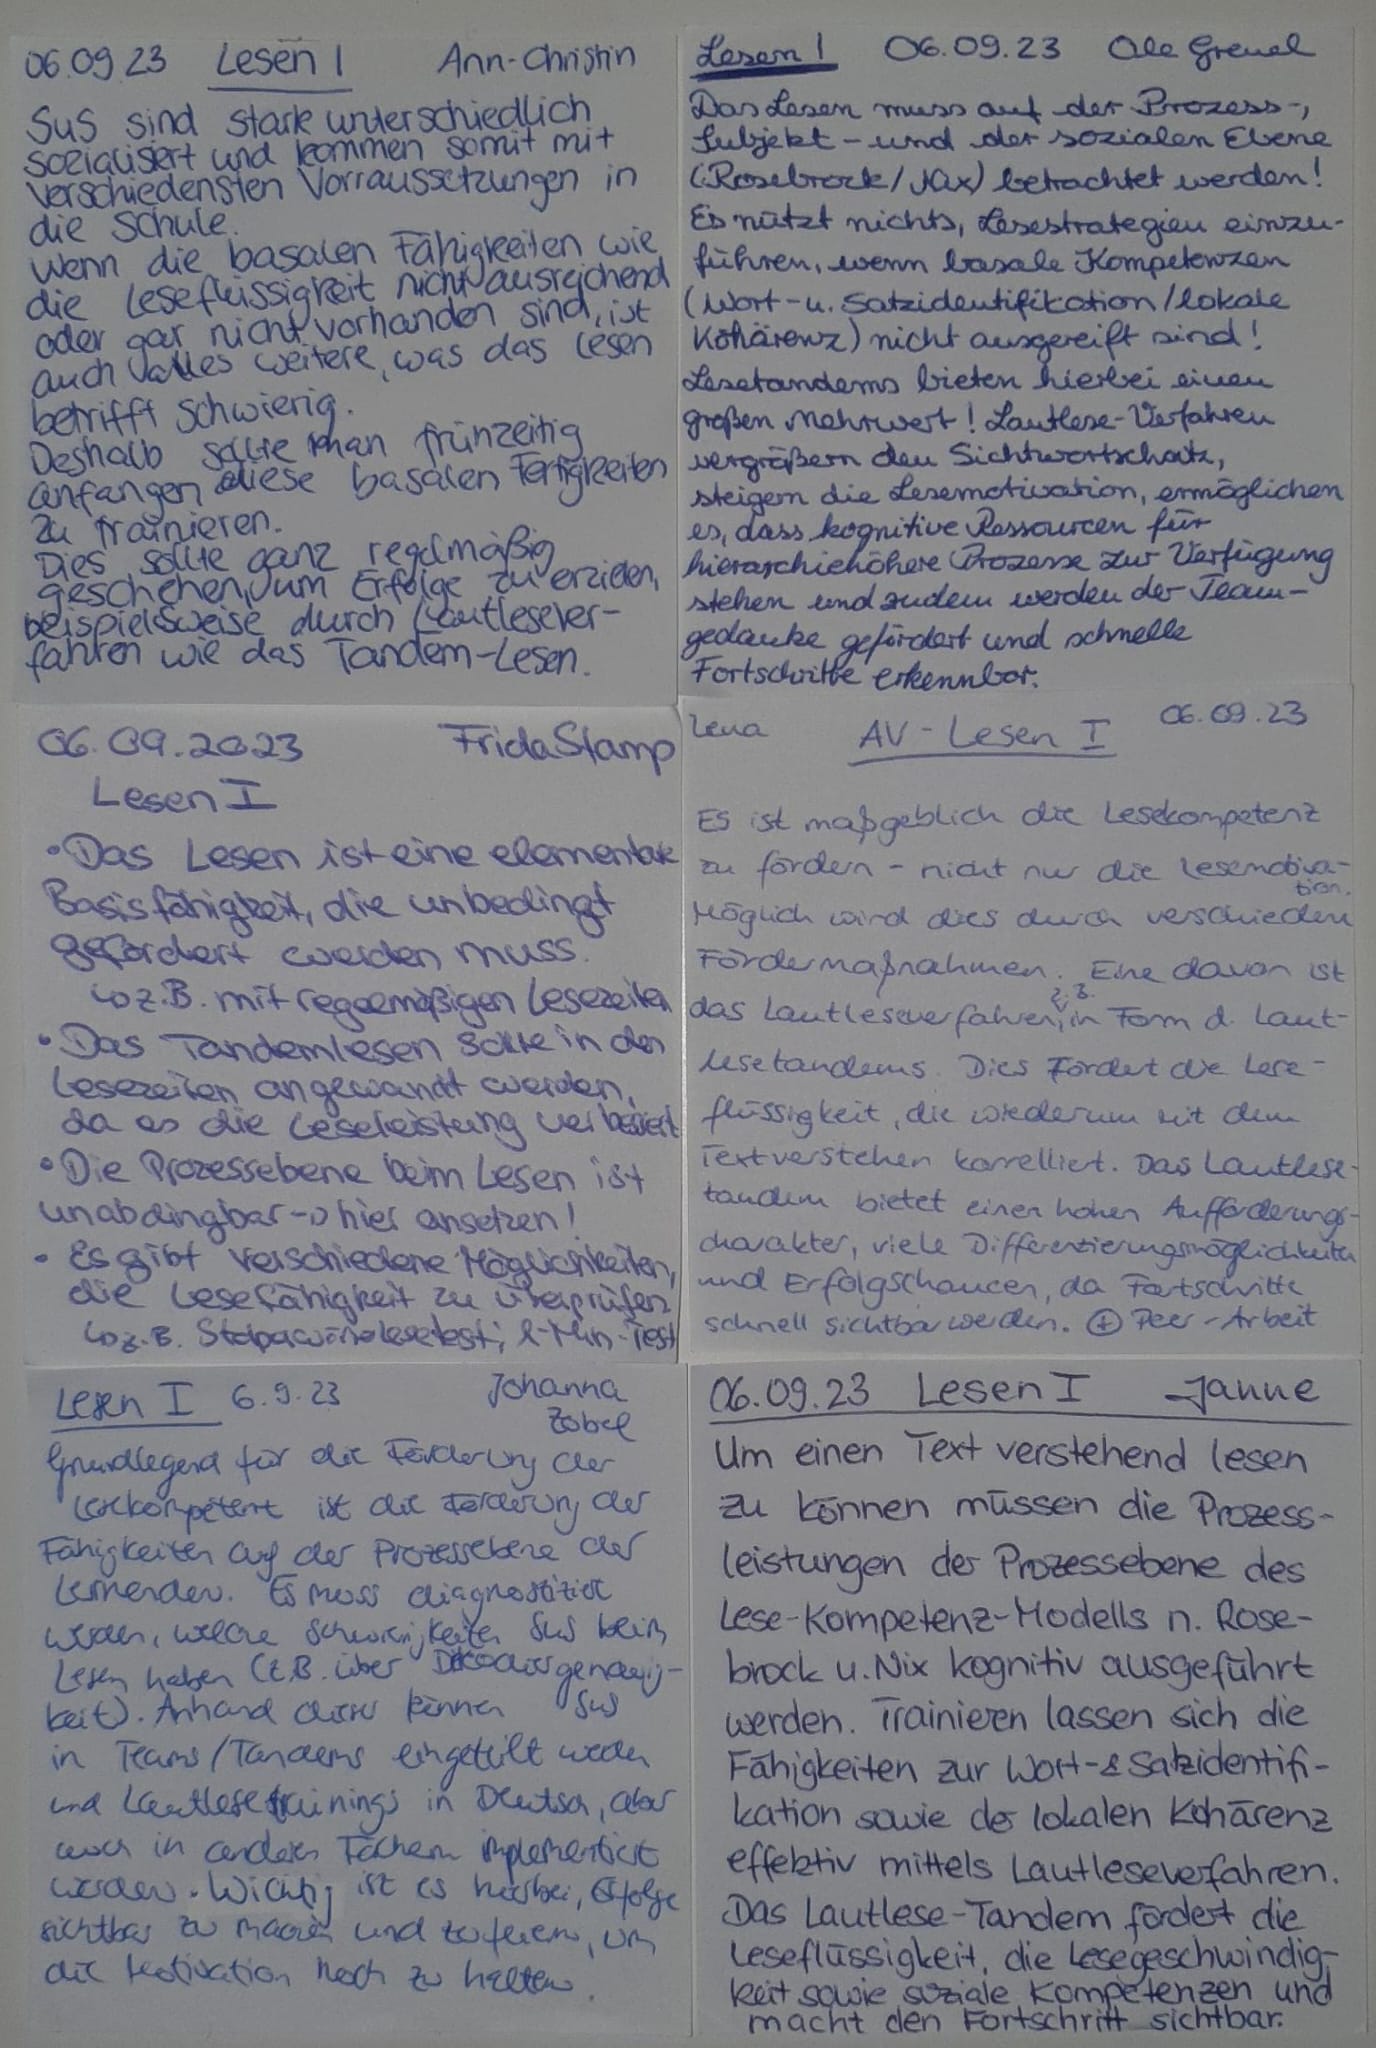 06.09.23 Lesen I Ann-Christin
SuS sind stark unterschiedlich
sozialisiert und kommen somit mit
verschiedensten Vorraussetzungen in
die Schule.
Wenn die basalen Fähigkeiten wie
die Leseflüssigkeit nicht ausreichend
oder gar nicht vorhanden sind, ist
auch alles weitere, was das Lesen
betrifft schwierig.
Deshalb sollte man frühzeitig
anfangen diese basalen Fertigkeiten
zu trainieren.
Dies sollte ganz regelmäßig
geschehen, um Erfolge zu erzielen,
beispielsweise durch Lautlesever-
fahren wie das Tandem-Lesen.
Lesen I 06.09.23 Ole Greuel
Das Lesen muss auf der Prozess-,
Subjekt- und der sozialen Ebene
(Rosebrock/Nix) betrachtet werden!
Es nützt nichts, Lesestrategien einzu-
führen, wenn basale Kompetenzen
(Wort- u. Satzidentifikation/lokale
Kohärenz) nicht ausgereift sind!
Lesetandems bieten hierbei einen
großen Mehrwert! Lautlese-Verfahren
vergrößern den Sichtwortschatz,
steigern die Lesemotivation, ermöglichen
es, dass kognitive Ressourcen für
hierarchiehöhere Prozesse zur Verfügung
stehen und zudem werden der Team-
gedanke gefördert und schnelle
Fortschritte erkennbar.
06.09.2023 Frida Stamp
Lesen I
• Das Lesen ist eine elementare
Basisfähigkeit, die unbedingt
gefördert werden muss.
↳ z.B. mit regelmäßigen Lesezeiten
• Das Tandemlesen sollte in den
Lesezeiten angewandt werden,
da es die Leseleistung verbessert
• Die Prozessebene beim Lesen ist
unabdingbar -> hier ansetzen!
• Es gibt verschiedene Möglichkeiten,
die Lesefähigkeit zu überprüfen
↳ z.B. Stolperwörterlesetest, 1-Min-Test
Lena AV-Lesen I 06.09.23
Es ist maßgeblich die Lesekompetenz
zu fördern - nicht nur die Lesemotiva-
tion.
Möglich wird dies durch verschieden
Fördermaßnahmen. Eine davon ist
das Lautleseverfahren, z.B. in Form d. Laut-
lesetandems. Dies fördert die Lese-
flüssigkeit, die wiederum mit dem
Textverstehen korreliert. Das Lautlese-
tandem bietet einen hohen Aufforderungs-
charakter, viele Differenzierungsmöglichkeiten
und Erfolgschancen, da Fortschritte
schnell sichtbar werden. ⊕ Peer-Arbeit
Lesen I 6.9.23 Johanna
Zobel
Grundlegend für die Förderung der
Lesekompetenz ist die Förderung der
Fähigkeiten auf der Prozessebene der
Lernenden. Es muss diagnostiziert
werden, welche Schwierigkeiten SuS beim
Lesen haben (z.B. über Dekodiergenauig-
keit). Anhand dieser können SuS
in Teams/Tandems eingeteilt werden
und Lautlesetrainings in Deutsch, aber
auch in anderen Fächern implementiert
werden. Wichtig ist es hierbei, Erfolge
sichtbar zu machen und zu feiern, um
die Motivation hoch zu halten.
06.09.23 Lesen I Janne
Um einen Text verstehend lesen
zu können müssen die Prozess-
leistungen der Prozessebene des
Lese-Kompetenz-Modells n. Rose-
brock u. Nix kognitiv ausgeführt
werden. Trainieren lassen sich die
Fähigkeiten zur Wort- & Satzidentifi-
kation sowie der lokalen Kohärenz
effektiv mittels Lautleseverfahren.
Das Lautlese-Tandem fördert die
Leseflüssigkeit, die Lesegeschwindig-
keit sowie soziale Kompetenzen und
macht den Fortschritt sichtbar.